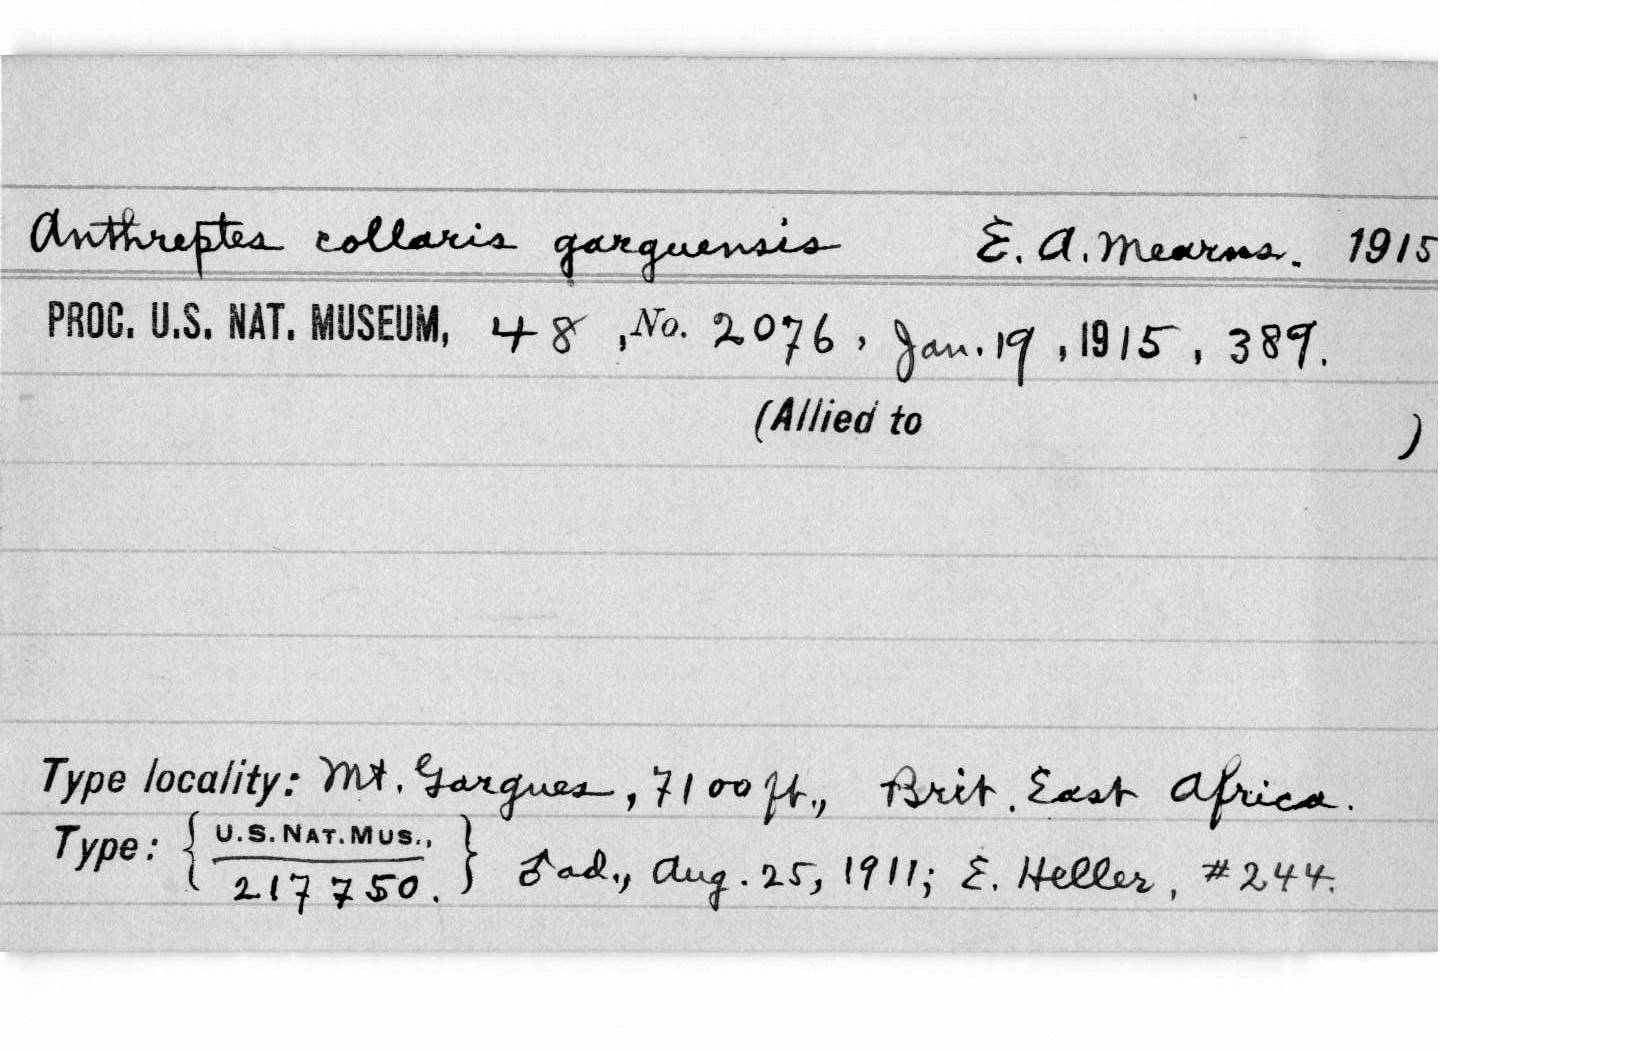 Anthreptes collaris garguensis E. A. Mearns. 1915
PROC. U.S. NAT. MUSEUM, 48, No. 2076, Jan. 19, 1915, 389.
(Allied to )
Type locality: Mt. Gargues, 7100 ft., Brit. East Africa.
Type: { U.S. NAT. MUS., }
217750. ♂ ad., Aug. 25, 1911; E. Heller, #244.